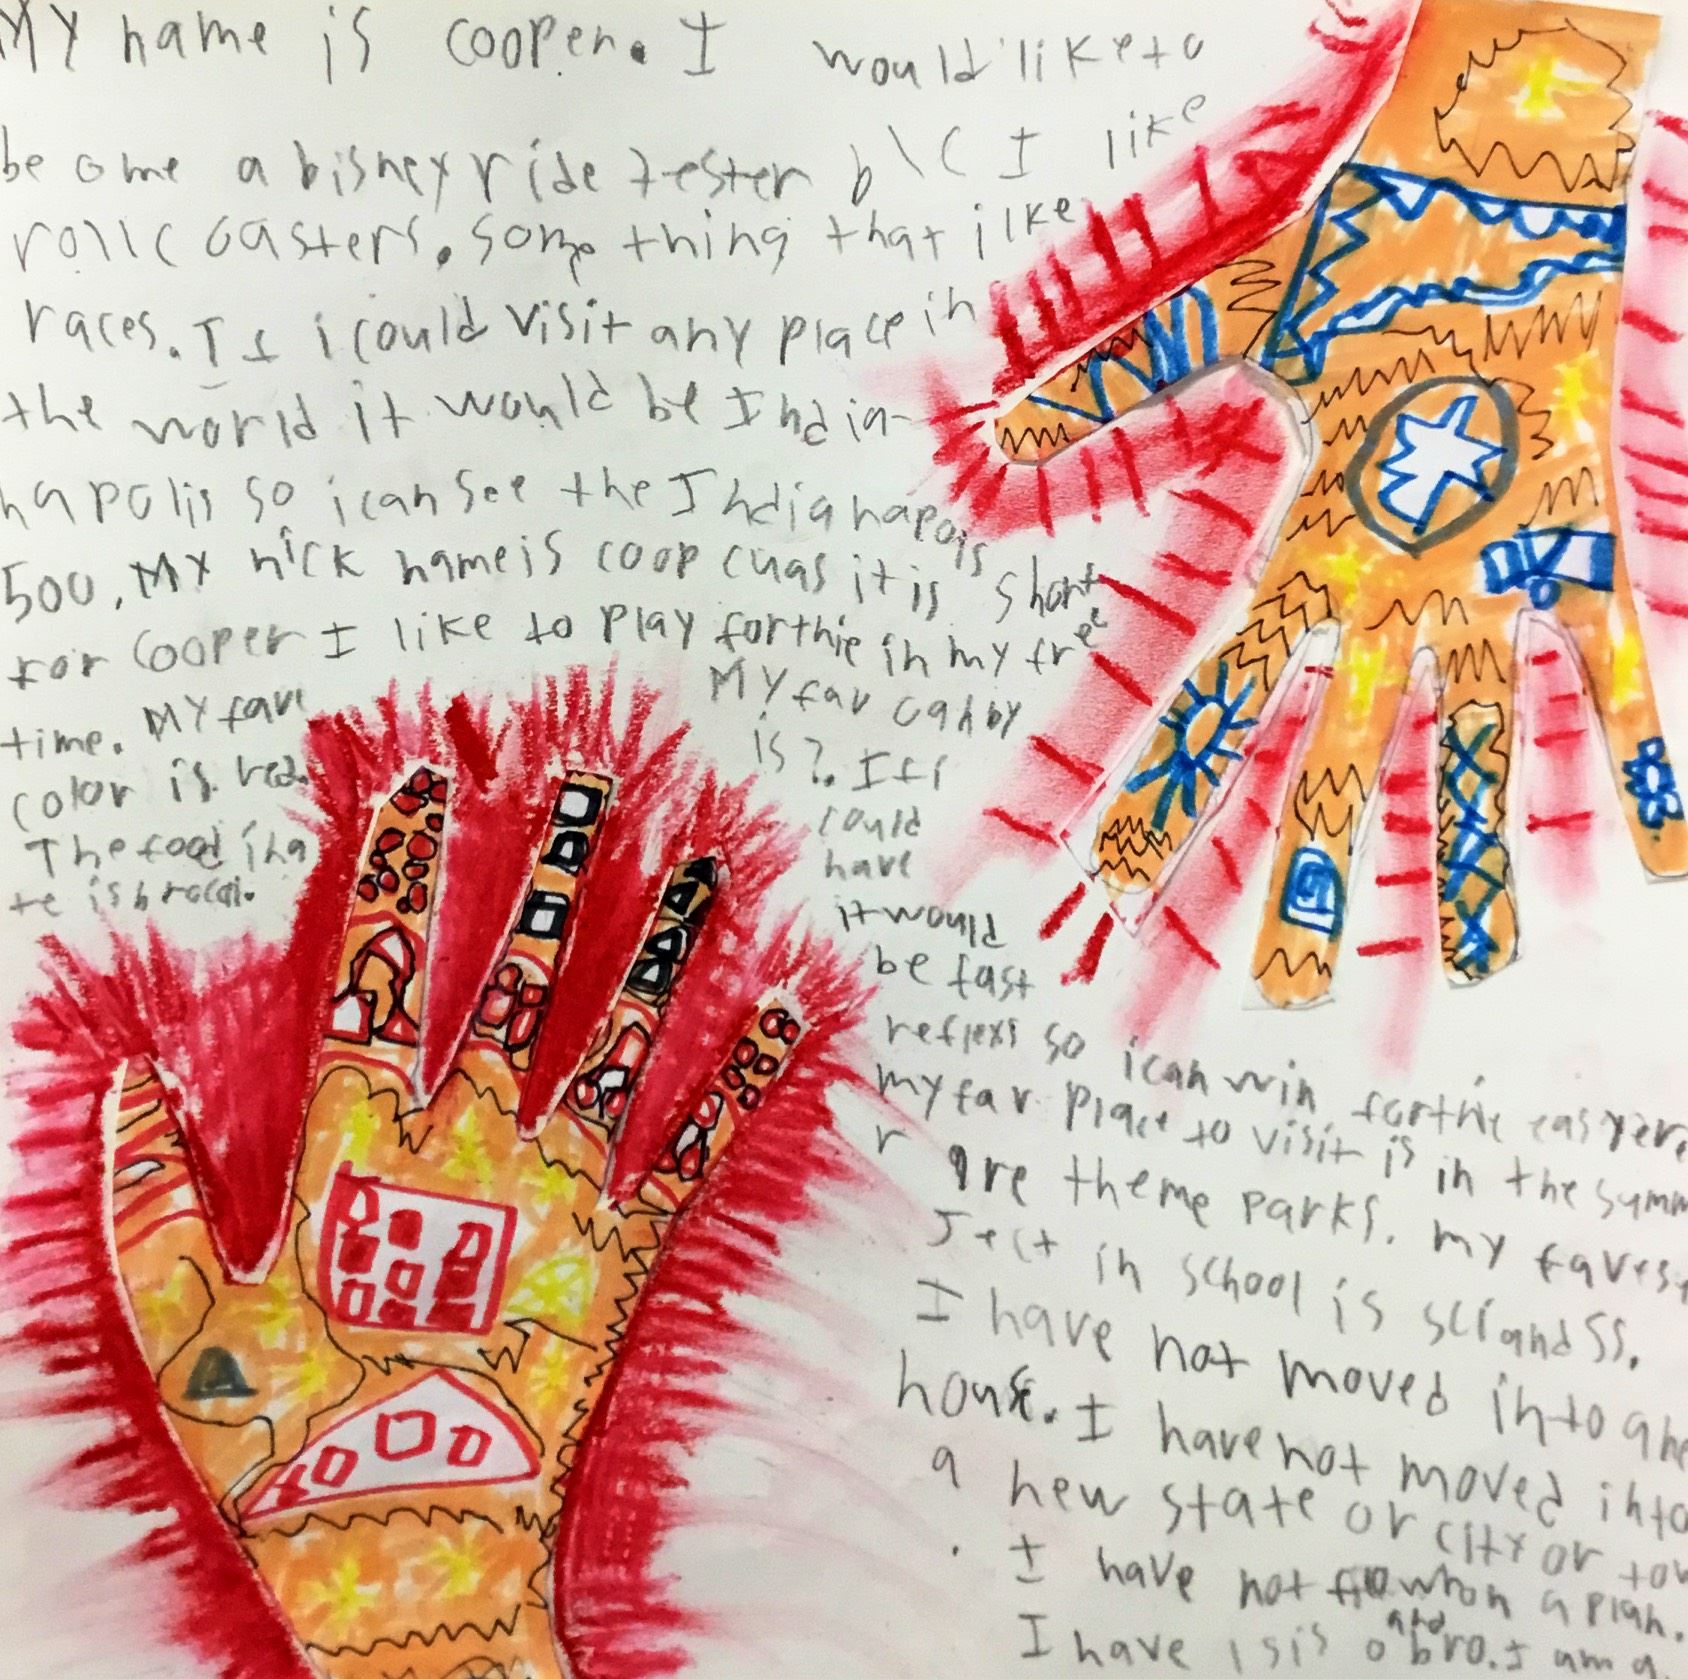 My name is cooper. I would like to
be ome a Disney ride tester b\c I like
rollc oasters. Some thing that i like
races. If i could visit any place in
the world it would be India-
napolis so i can see the Indianapois
500. My nick name is coop cuas it is short
for Cooper I like to play fortnie in my free
time. My fav
color is red.
The food i ha
te is brocoi.
My fav canby
is ?. If i
could
have
it would
be fast
reflexs so i can win fortnie easyer.
my fav place to visit is in the summ
r are theme parks. my faves
Ject in school is sci and SS.
I have not moved into a ne
house. I have not moved into
a new state or city or tow
. I have not flown on a plan.
I have 1 sis and 0 bro. I am a